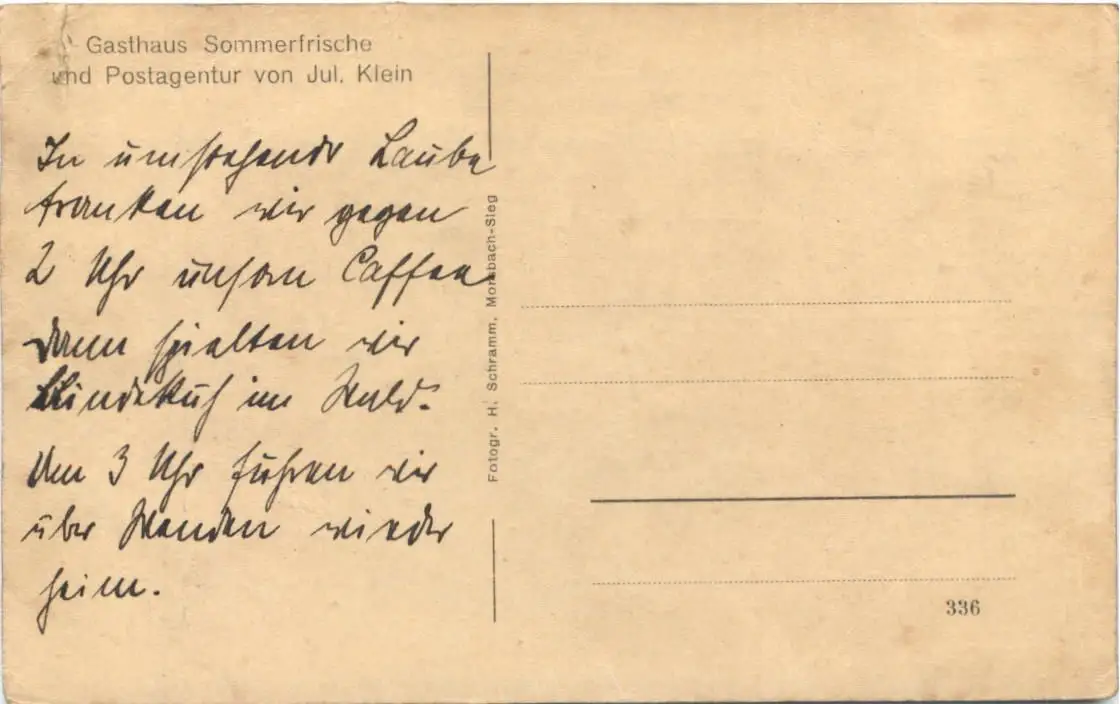 Gasthaus Sommerfrische
und Postagentur von Jul. Klein
In umstehender Laube
tranken wir gegen
2 Uhr unsern Caffee
dann spielten wir
Blindekuh im Wald.
Um 3 Uhr fuhren wir
über Wenden wieder
heim.
Fotogr. H. Schramm. Morsbach-Sieg
336